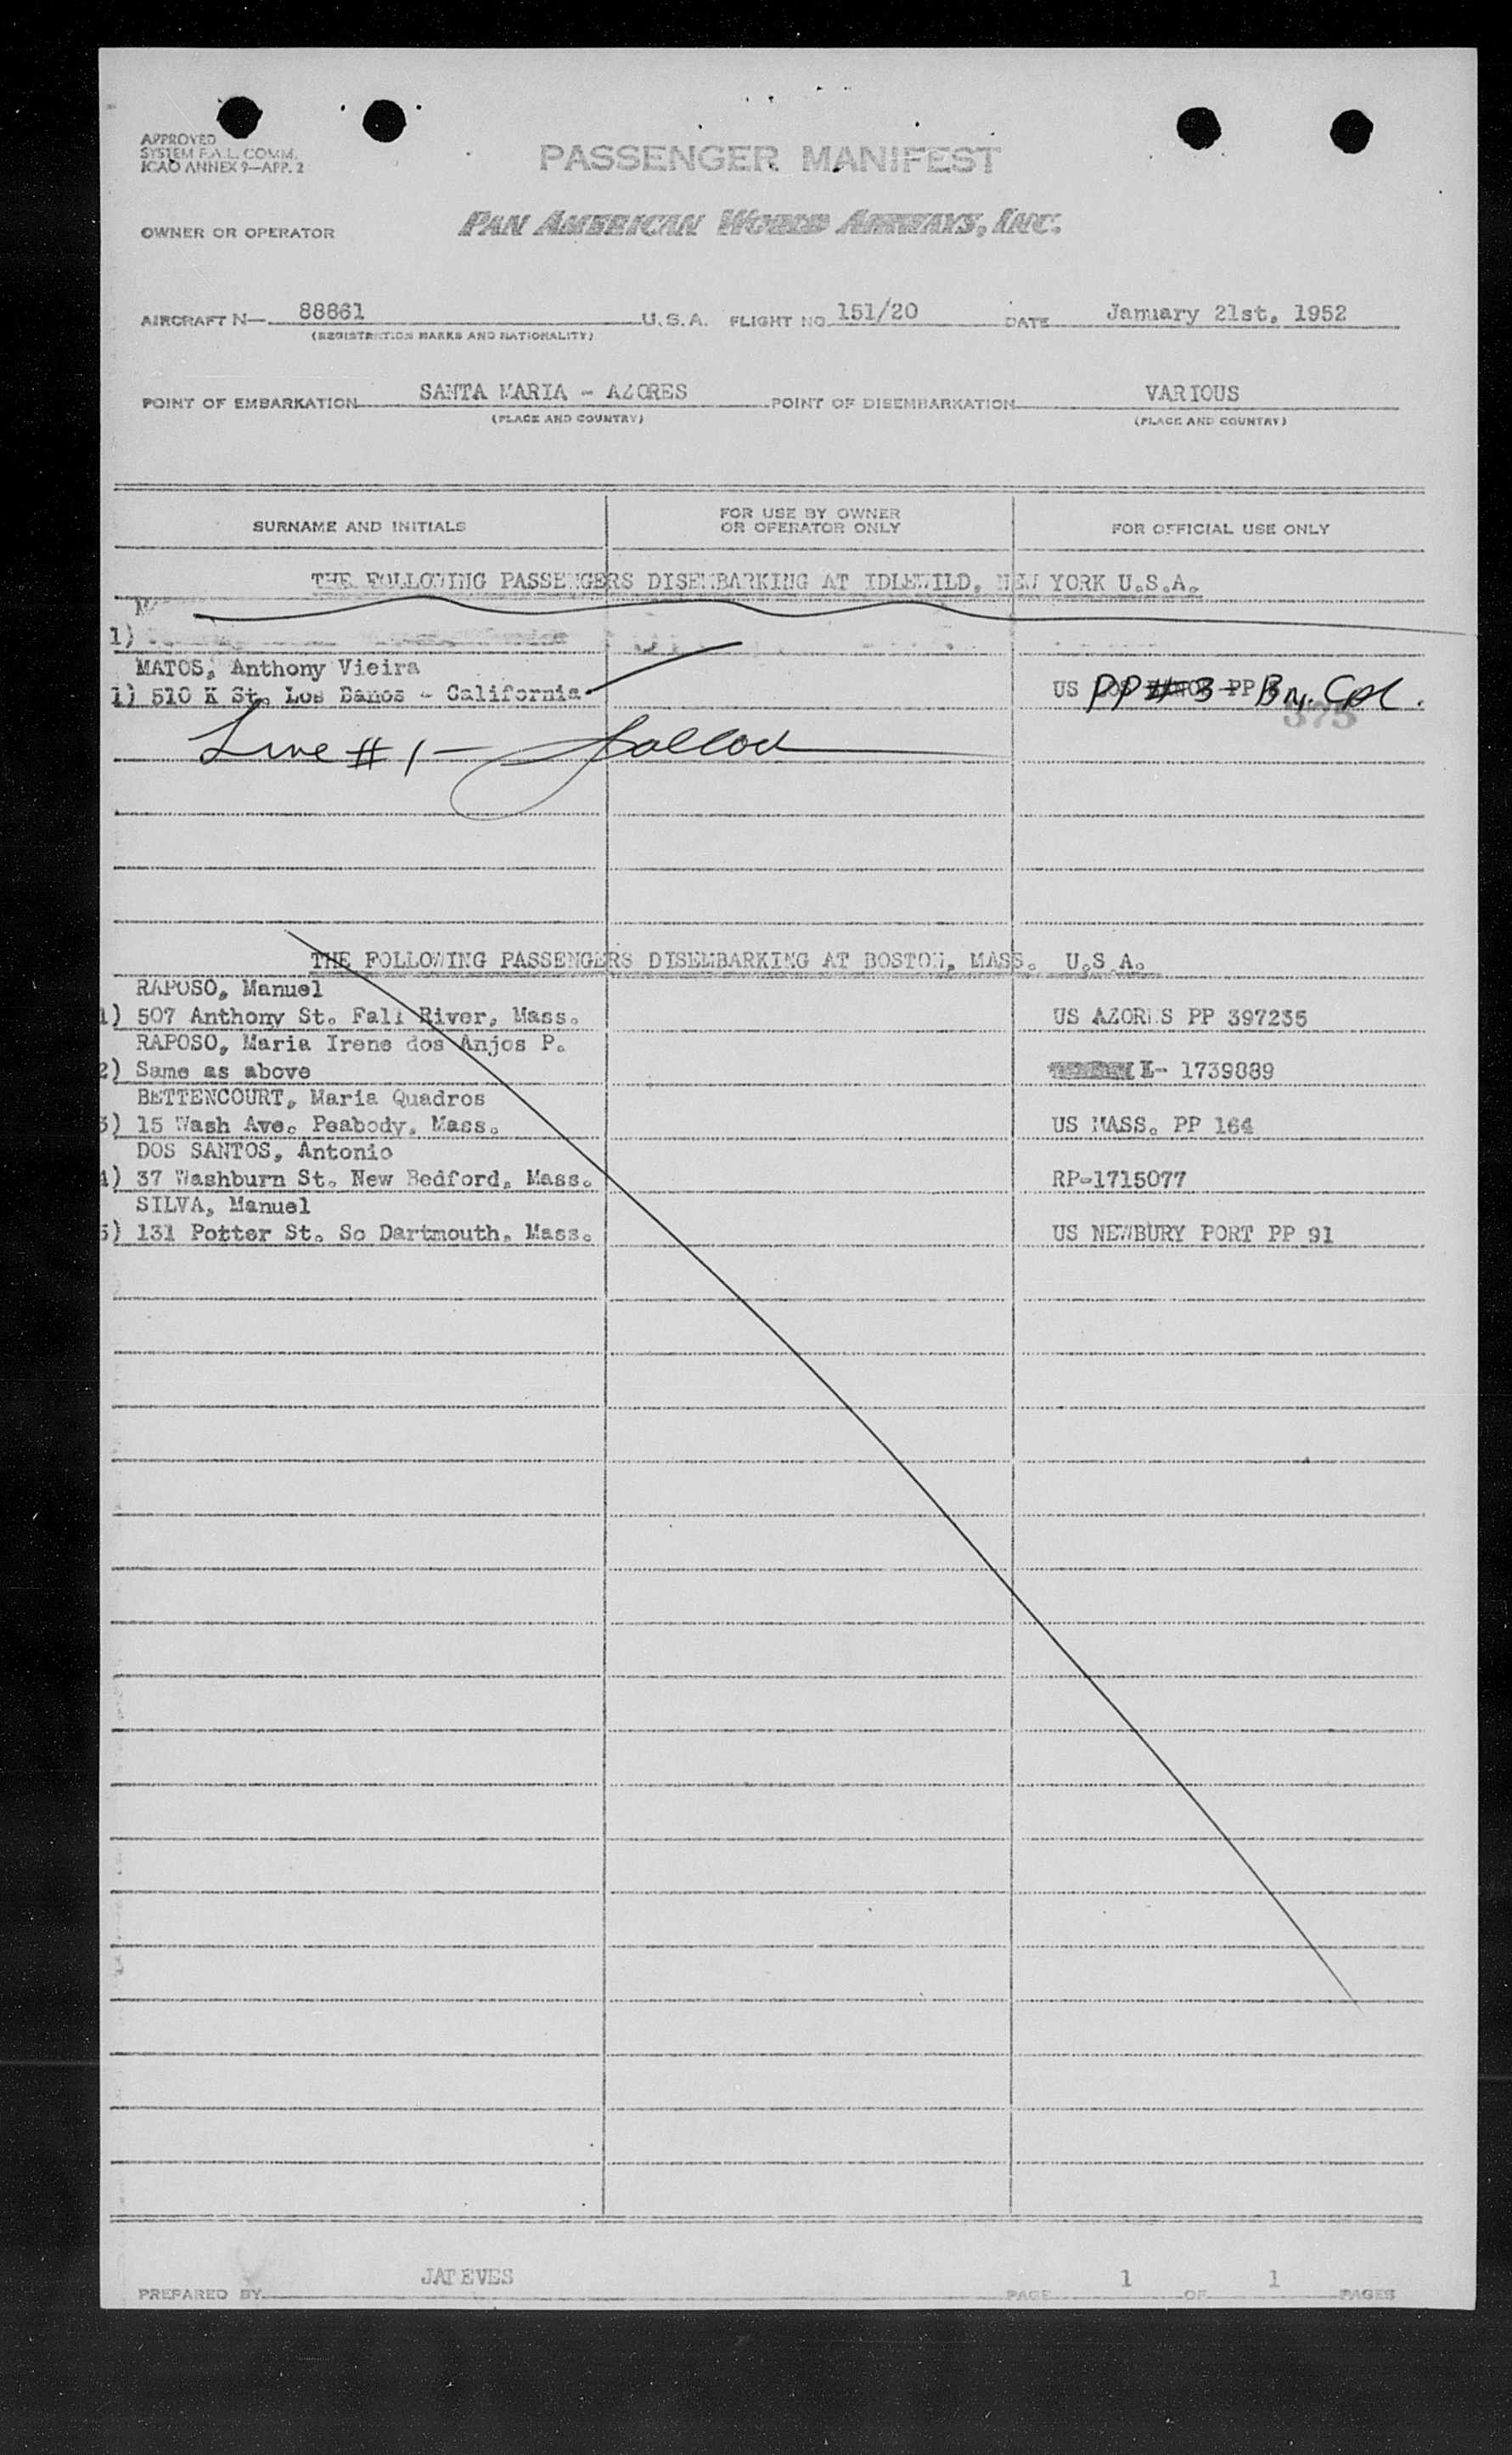 APPROVED
SYSTEM F.A.L. COMM.
ICAO ANNEX 9—APP. 2
PASSENGER MANIFEST
OWNER OR OPERATOR
PAN AMERICAN WORLD AIRWAYS, INC.
AIRCRAFT N— 88861 U.S.A. FLIGHT NO. 151/20 DATE January 21st, 1952
(REGISTRATION MARKS AND NATIONALITY)
POINT OF EMBARKATION SANTA MARIA - AZORES POINT OF DISEMBARKATION VARIOUS
(PLACE AND COUNTRY) (PLACE AND COUNTRY)
SURNAME AND INITIALS
FOR USE BY OWNER
OR OPERATOR ONLY
FOR OFFICIAL USE ONLY
THE FOLLOWING PASSENGERS DISEMBARKING AT IDLEWILD, NEW YORK U.S.A.
1)
MATOS, Anthony Vieira
1) 510 K St. Los Banos - California US PP # 3 - PP
375
Line # 1 -
THE FOLLOWING PASSENGERS DISEMBARKING AT BOSTON, MASS. U.S.A.
RAPOSO, Manuel
1) 507 Anthony St. Fall River, Mass. US AZORES PP 397235
RAPOSO, Maria Irene dos Anjos P.
2) Same as above I- 1739889
BETTENCOURT, Maria Quadros
3) 15 Wash Ave. Peabody, Mass. US MASS. PP 164
DOS SANTOS, Antonio
4) 37 Washburn St. New Bedford, Mass. RP-1715077
SILVA, Manuel
5) 131 Potter St. So Dartmouth, Mass. US NEWBURY PORT PP 91
PREPARED BY JATEVES PAGE 1 OF 1 PAGES